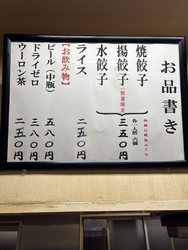 お品書き
焼餃子
揚餃子(数量限定)
水餃子
三五〇円
ライス
二五〇円
【お飲み物】
ビール(中瓶)
五八〇円
ドライゼロ
三八〇円
ウーロン茶
二五〇円